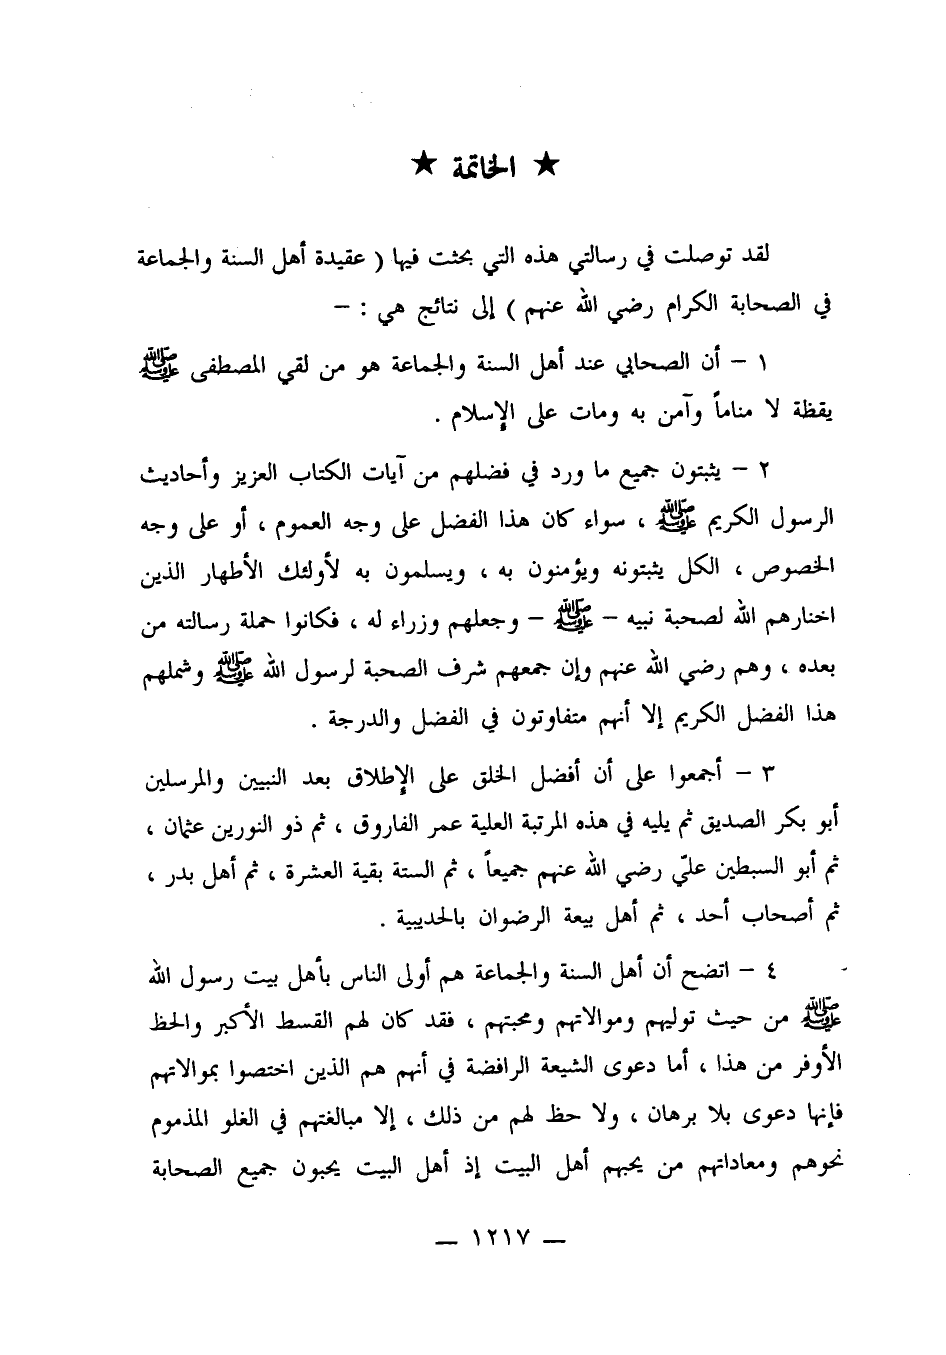 ★ الخاتمة ★
لقد توصلت في رسالتي هذه التي بحثت فيها ( عقيدة أهل السنة والجماعة
في الصحابة الكرام رضي الله عنهم ) إلى نتائج هي : –
١ – أن الصحابي عند أهل السنة والجماعة هو من لقي المصطفى ﷺ
يقظة لا مناماً وآمن به ومات على الإسلام .
٢ – يثبتون جميع ما ورد في فضلهم من آيات الكتاب العزيز وأحاديث
الرسول الكريم ﷺ ، سواء كان هذا الفضل على وجه العموم ، أو على وجه
الخصوص ، الكل يثبتونه ويؤمنون به ، ويسلمون به لأولئك الأطهار الذين
اختارهم الله لصحبة نبيه – ﷺ – وجعلهم وزراء له ، فكانوا حملة رسالته من
بعده ، وهم رضي الله عنهم وإن جمعهم شرف الصحبة لرسول الله ﷺ وشملهم
هذا الفضل الكريم إلا أنهم متفاوتون في الفضل والدرجة .
٣ – أجمعوا على أن أفضل الخلق على الإطلاق بعد النبيين والمرسلين
أبو بكر الصديق ثم يليه في هذه المرتبة العلية عمر الفاروق ، ثم ذو النورين عثمان ،
ثم أبو السبطين عليّ رضي الله عنهم جميعاً ، ثم الستة بقية العشرة ، ثم أهل بدر ،
ثم أصحاب أحد ، ثم أهل بيعة الرضوان بالحديبية .
٤ – اتضح أن أهل السنة والجماعة هم أولى الناس بأهل بيت رسول الله
ﷺ من حيث توليهم وموالاتهم ومحبتهم ، فقد كان لهم القسط الأكبر والحظ
الأوفر من هذا ، أما دعوى الشيعة الرافضة في أنهم هم الذين اختصوا بموالاتهم
فإنها دعوى بلا برهان ، ولا حظ لهم من ذلك ، إلا مبالغتهم في الغلو المذموم
نحوهم ومعاداتهم من يحبهم أهل البيت إذ أهل البيت يحبون جميع الصحابة
— ١٢١٧ —